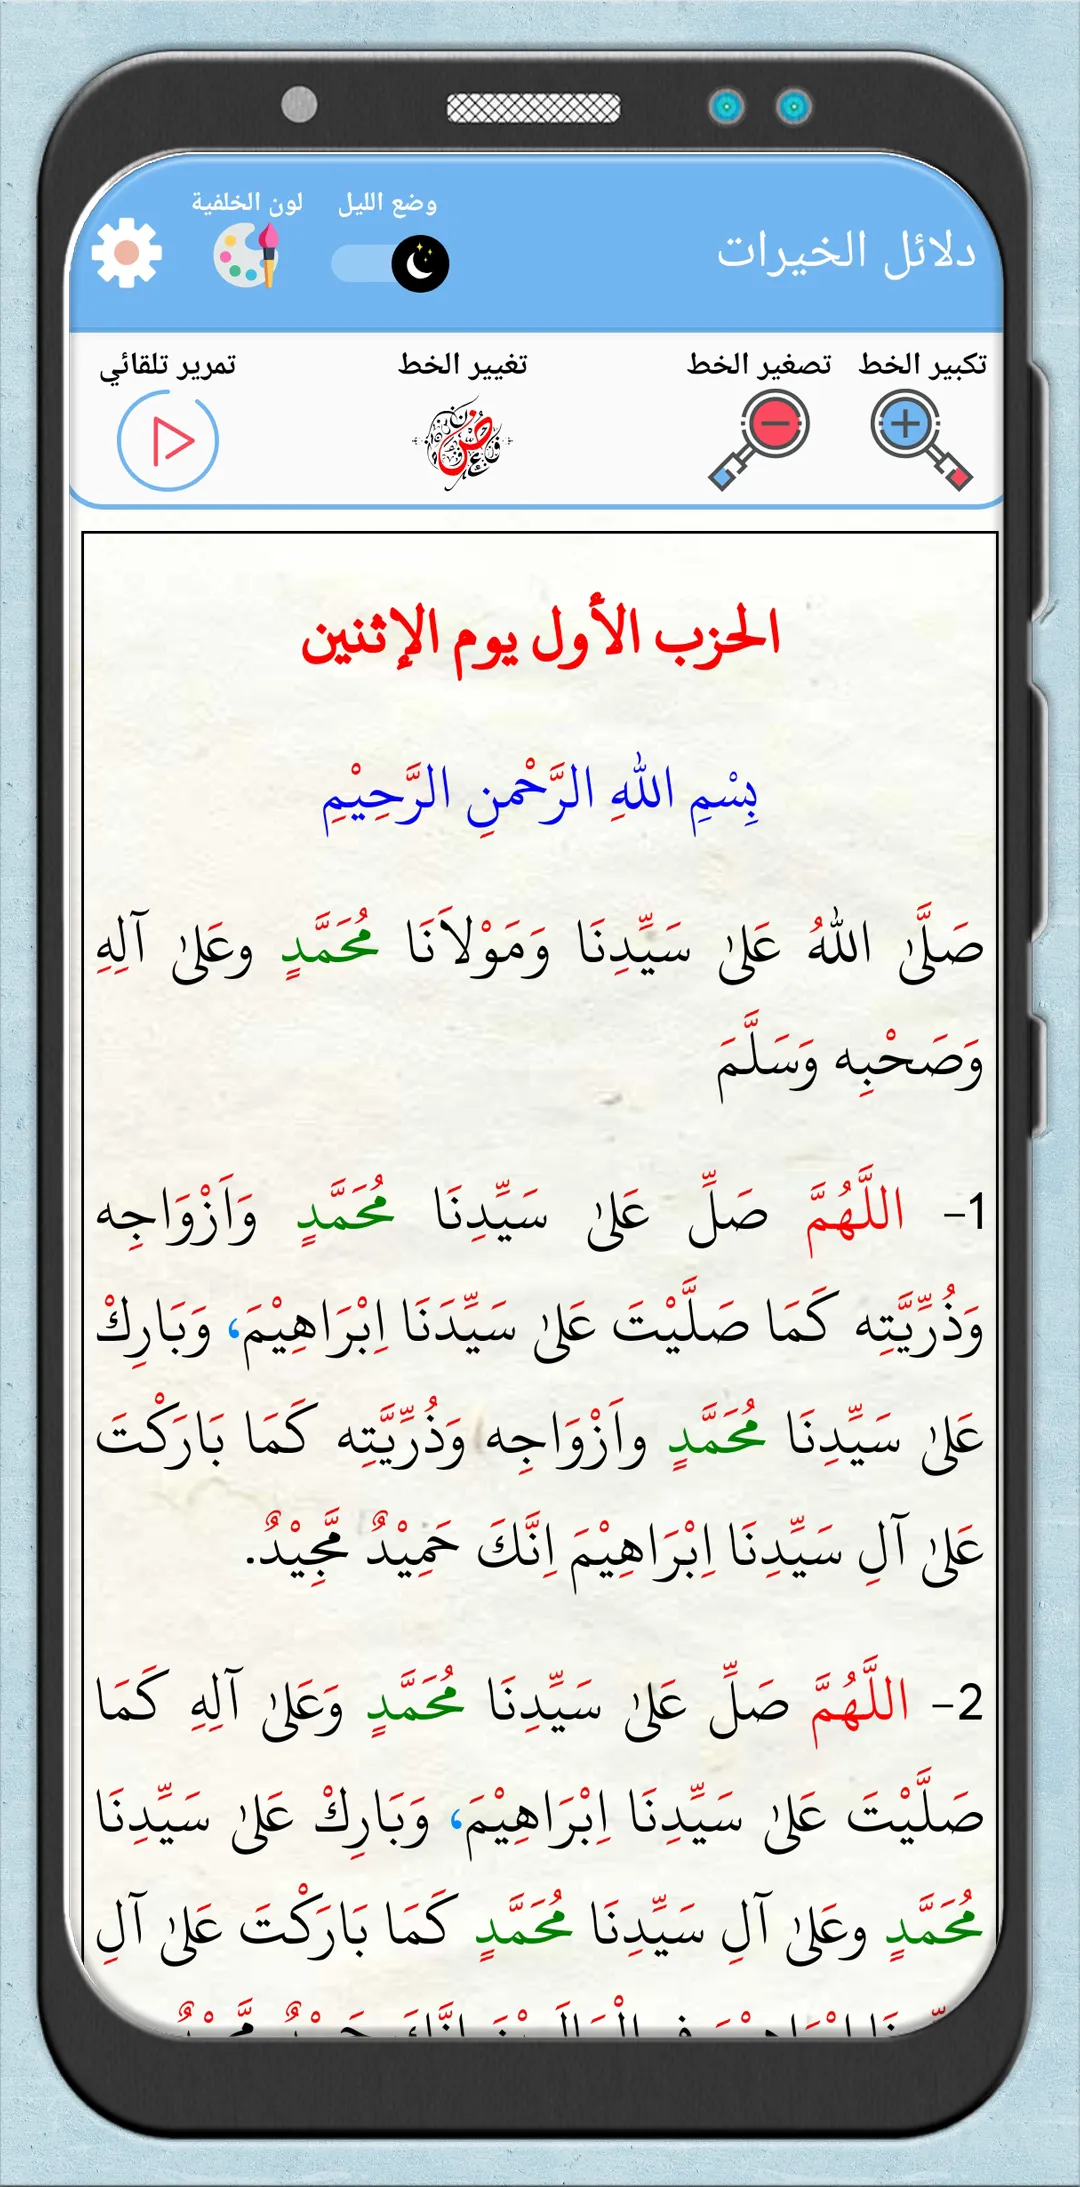 لون الخلفية
وضع الليل
دلائل الخيرات
تكبير الخط
تصغير الخط
تغيير الخط
تمرير تلقائي
الحزب الأول يوم الإثنين
بِسْمِ اللهِ الرَّحْمنِ الرَّحِيْمِ
صَلَّىٰ اللهُ عَلىٰ سَيِّدِنَا وَمَوْلاَنَا مُحَمَّدٍ وعَلىٰ آلِهِ
وَصَحْبِه وَسَلَّمَ
1- اللَّهُمَّ صَلِّ عَلىٰ سَيِّدِنَا مُحَمَّدٍ وَاَزْوَاجِه
وَذُرِّيَّتِه كَمَا صَلَّيْتَ عَلىٰ سَيِّدَنَا اِبْرَاهِيْمَ، وَبَارِكْ
عَلىٰ سَيِّدِنَا مُحَمَّدٍ واَزْوَاجِه وَذُرِّيَّتِه كَمَا بَارَكْتَ
عَلىٰ آلِ سَيِّدِنَا اِبْرَاهِيْمَ اِنَّكَ حَمِيْدٌ مَّجِيْدٌ.
2- اللَّهُمَّ صَلِّ عَلىٰ سَيِّدِنَا مُحَمَّدٍ وَعَلىٰ آلِهِ كَمَا
صَلَّيْتَ عَلىٰ سَيِّدِنَا اِبْرَاهِيْمَ، وَبَارِكْ عَلىٰ سَيِّدِنَا
مُحَمَّدٍ وعَلىٰ آلِ سَيِّدِنَا مُحَمَّدٍ كَمَا بَارَكْتَ عَلىٰ آلِ